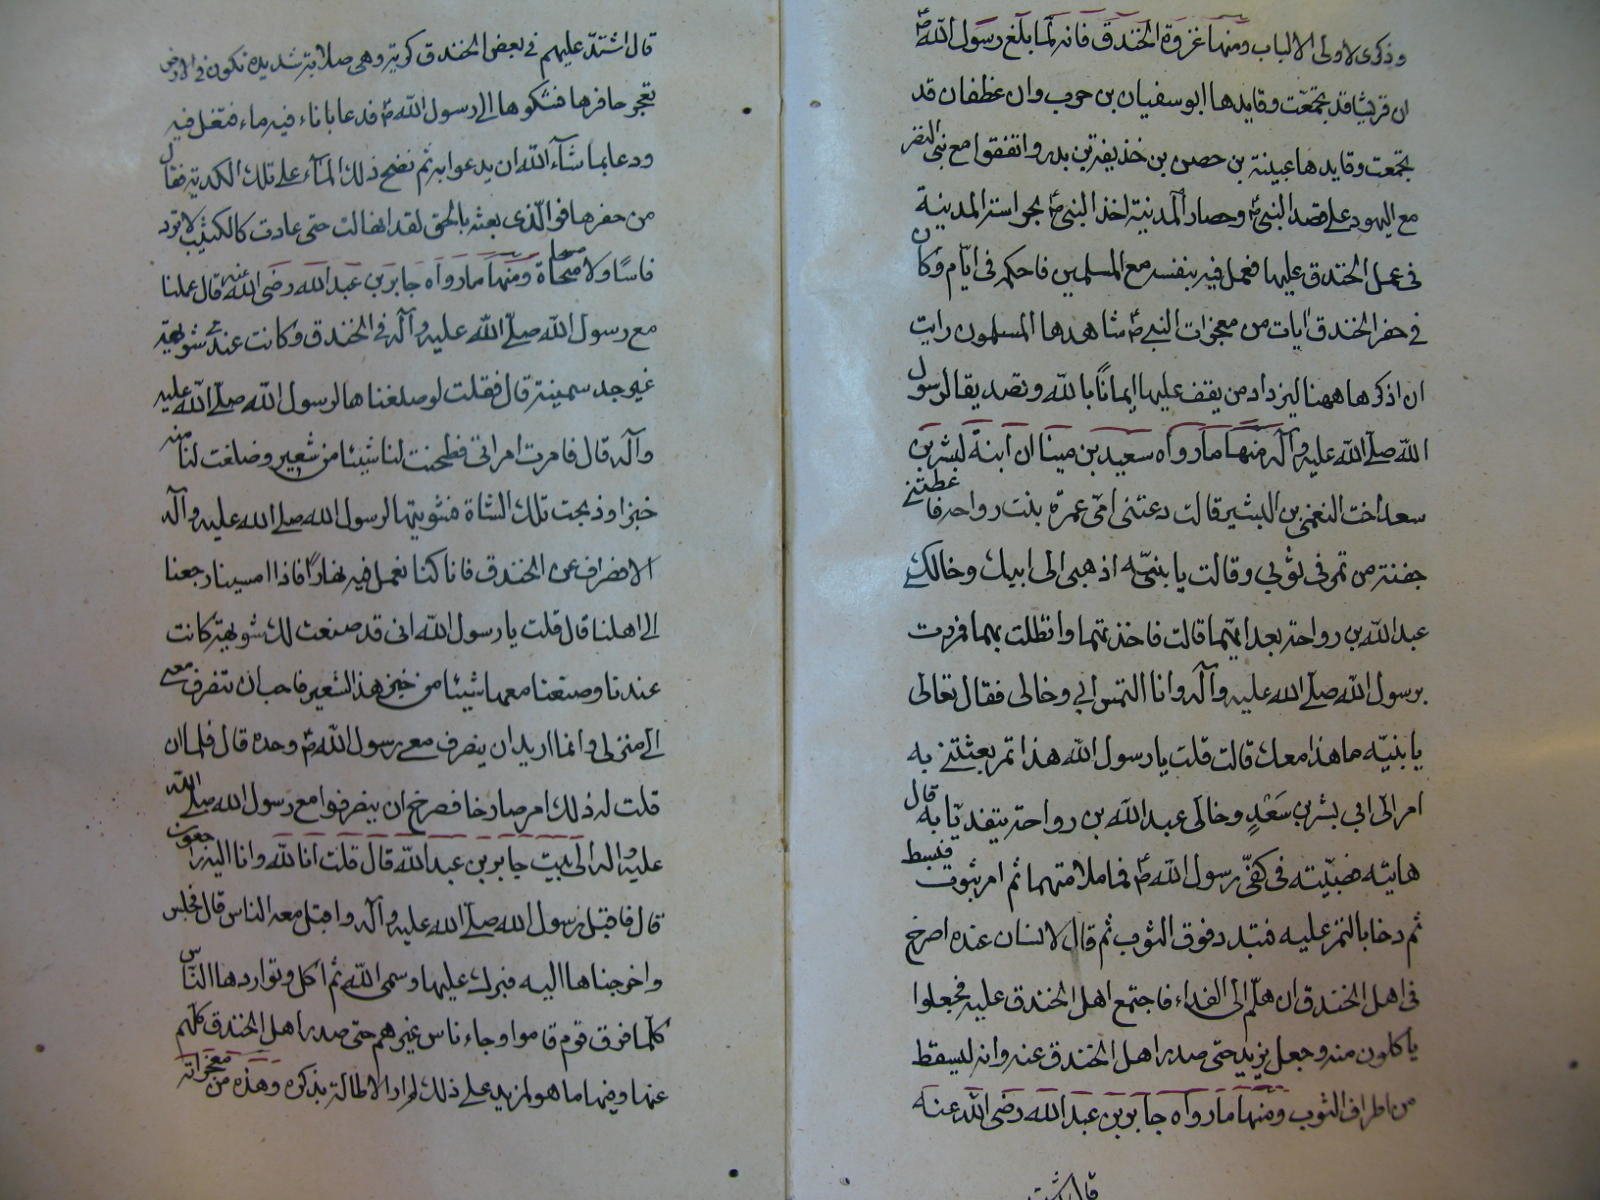 وذكرى لاولى الالباب ومنها غزوة الخندق فانه لما بلغ رسول الله ص
ان قريشا قد تجمعت وقايدها ابو سفيان بن حرب وان غطفان قد
تجمعت وقايدها عيينة بن حصن بن حذيفة بن بدر واتفقوا مع بنى النضر
مع اليهود على قصد النبى ص وحصار المدينة اخذ النبى ص بحراسة المدينة
فى عمل الخندق عليها فعمل فيه بنفسه مع المسلمين فاحكمه فى ايام وكان
فى حفر الخندق ايات من معجزات النبى ص شاهدها المسلمون رايت
ان اذكرها ههنا ليزداد من يقف عليها ايمانا بالله وتصديقا لرسول
الله صلى الله عليه وآله منها ما رواه سعيد بن مينا ان ابنة لبشر بن
سعد اخت النعمن بن البشير قالت دعتنى امى عمرة بنت رواحه فاعطتنى
جفنة من تمر فى ثوبى وقالت يا بنيه اذهبى الى ابيك وخالك
عبد الله بن رواحة بعدايهما قالت فاخذتهما وانطلقت بهما فمررت
برسول الله صلى الله عليه وآله وانا التمس ابى وخالى فقال تعالى
يا بنيه ما هذا معك قالت قلت يا رسول الله هذا تمر بعثتنى به
امى الى ابى بشر بن سعد وخالى عبد الله بن رواحة يتغديا به قال
هاتيه فصببته فى كفى رسول الله ص فما ملأتهما ثم امر بثوب فبسط
ثم دحا بالتمر عليه فتبدد فوق الثوب ثم قال لانسان عنده اصرخ
فى اهل الخندق ان هلم الى الغداء فاجتمع اهل الخندق عليه فجعلوا
ياكلون منه وجعل يزيد حتى صدر اهل الخندق عنه وانه ليسقط
من اطراف الثوب ومنها ما رواه جابر بن عبد الله رضى الله عنه
قال اشتد
قال اشتد عليهم فى بعض الخندق كدية وهى صلابة شديدة تكون فى الارض
تعجز حافرها فشكوها الى رسول الله ص فدعا باناء فيه ماء فتفل فيه
ودعا بما شآء الله ان يدعوا به ثم نضح ذلك المآء على تلك الكدية فقال
من حفرها فو الذى بعثه بالحق لقد انهالت حتى عادت كالكثيب لا ترد
فاسا ولا مسحاة ومنها ما رواه جابر بن عبد الله رضى الله عنه قال عملنا
مع رسول الله صلى الله عليه وآله فى الخندق وكانت عندى شويهة
غير جد سمينة قال فقلت لو صنعناها لرسول الله صلى الله عليه
وآله قال فامرت امراتى فطحنت لنا شيئا من شعير وصنعت لنا منه
خبزا وذبحت تلك الشاة فشويتها لرسول الله صلى الله عليه وآله
الانصراف عن الخندق فانا كنا نعمل فيه نهارا فاذا امسينا رجعنا
الى اهلنا قال قلت يا رسول الله انى قد صنعت لك شويهة كانت
عندنا وصنعنا معها شيئا من خبز هذا الشعير فاحب ان تنصرف معى
الى منزلى وانما اريد ان ينصرف معى رسول الله ص وحده قال فلما ان
قلت له ذلك امر صارخا فصرخ ان ينصرفوا مع رسول الله صلى الله
عليه واله الى بيت جابر بن عبد الله قال قلت انا لله وانا اليه راجعون
قال فاقبل رسول الله صلى الله عليه وآله واقبل معه الناس قال فجلس
واخرجناها اليه فبرك عليها وسمى الله ثم اكل وتواردها الناس
كلما فرق قوم قاموا وجاء ناس غيرهم حتى صدر اهل الخندق كلهم
عنها وفيها ما هو لمزيد على ذلك الاطالة بذكره وهذه من معجزاته